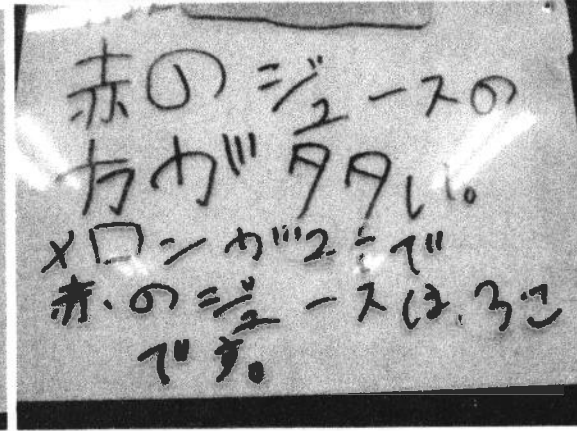 赤のジュースの
方が多い。
メロンが2こで
赤のジュースは、3こ
です。